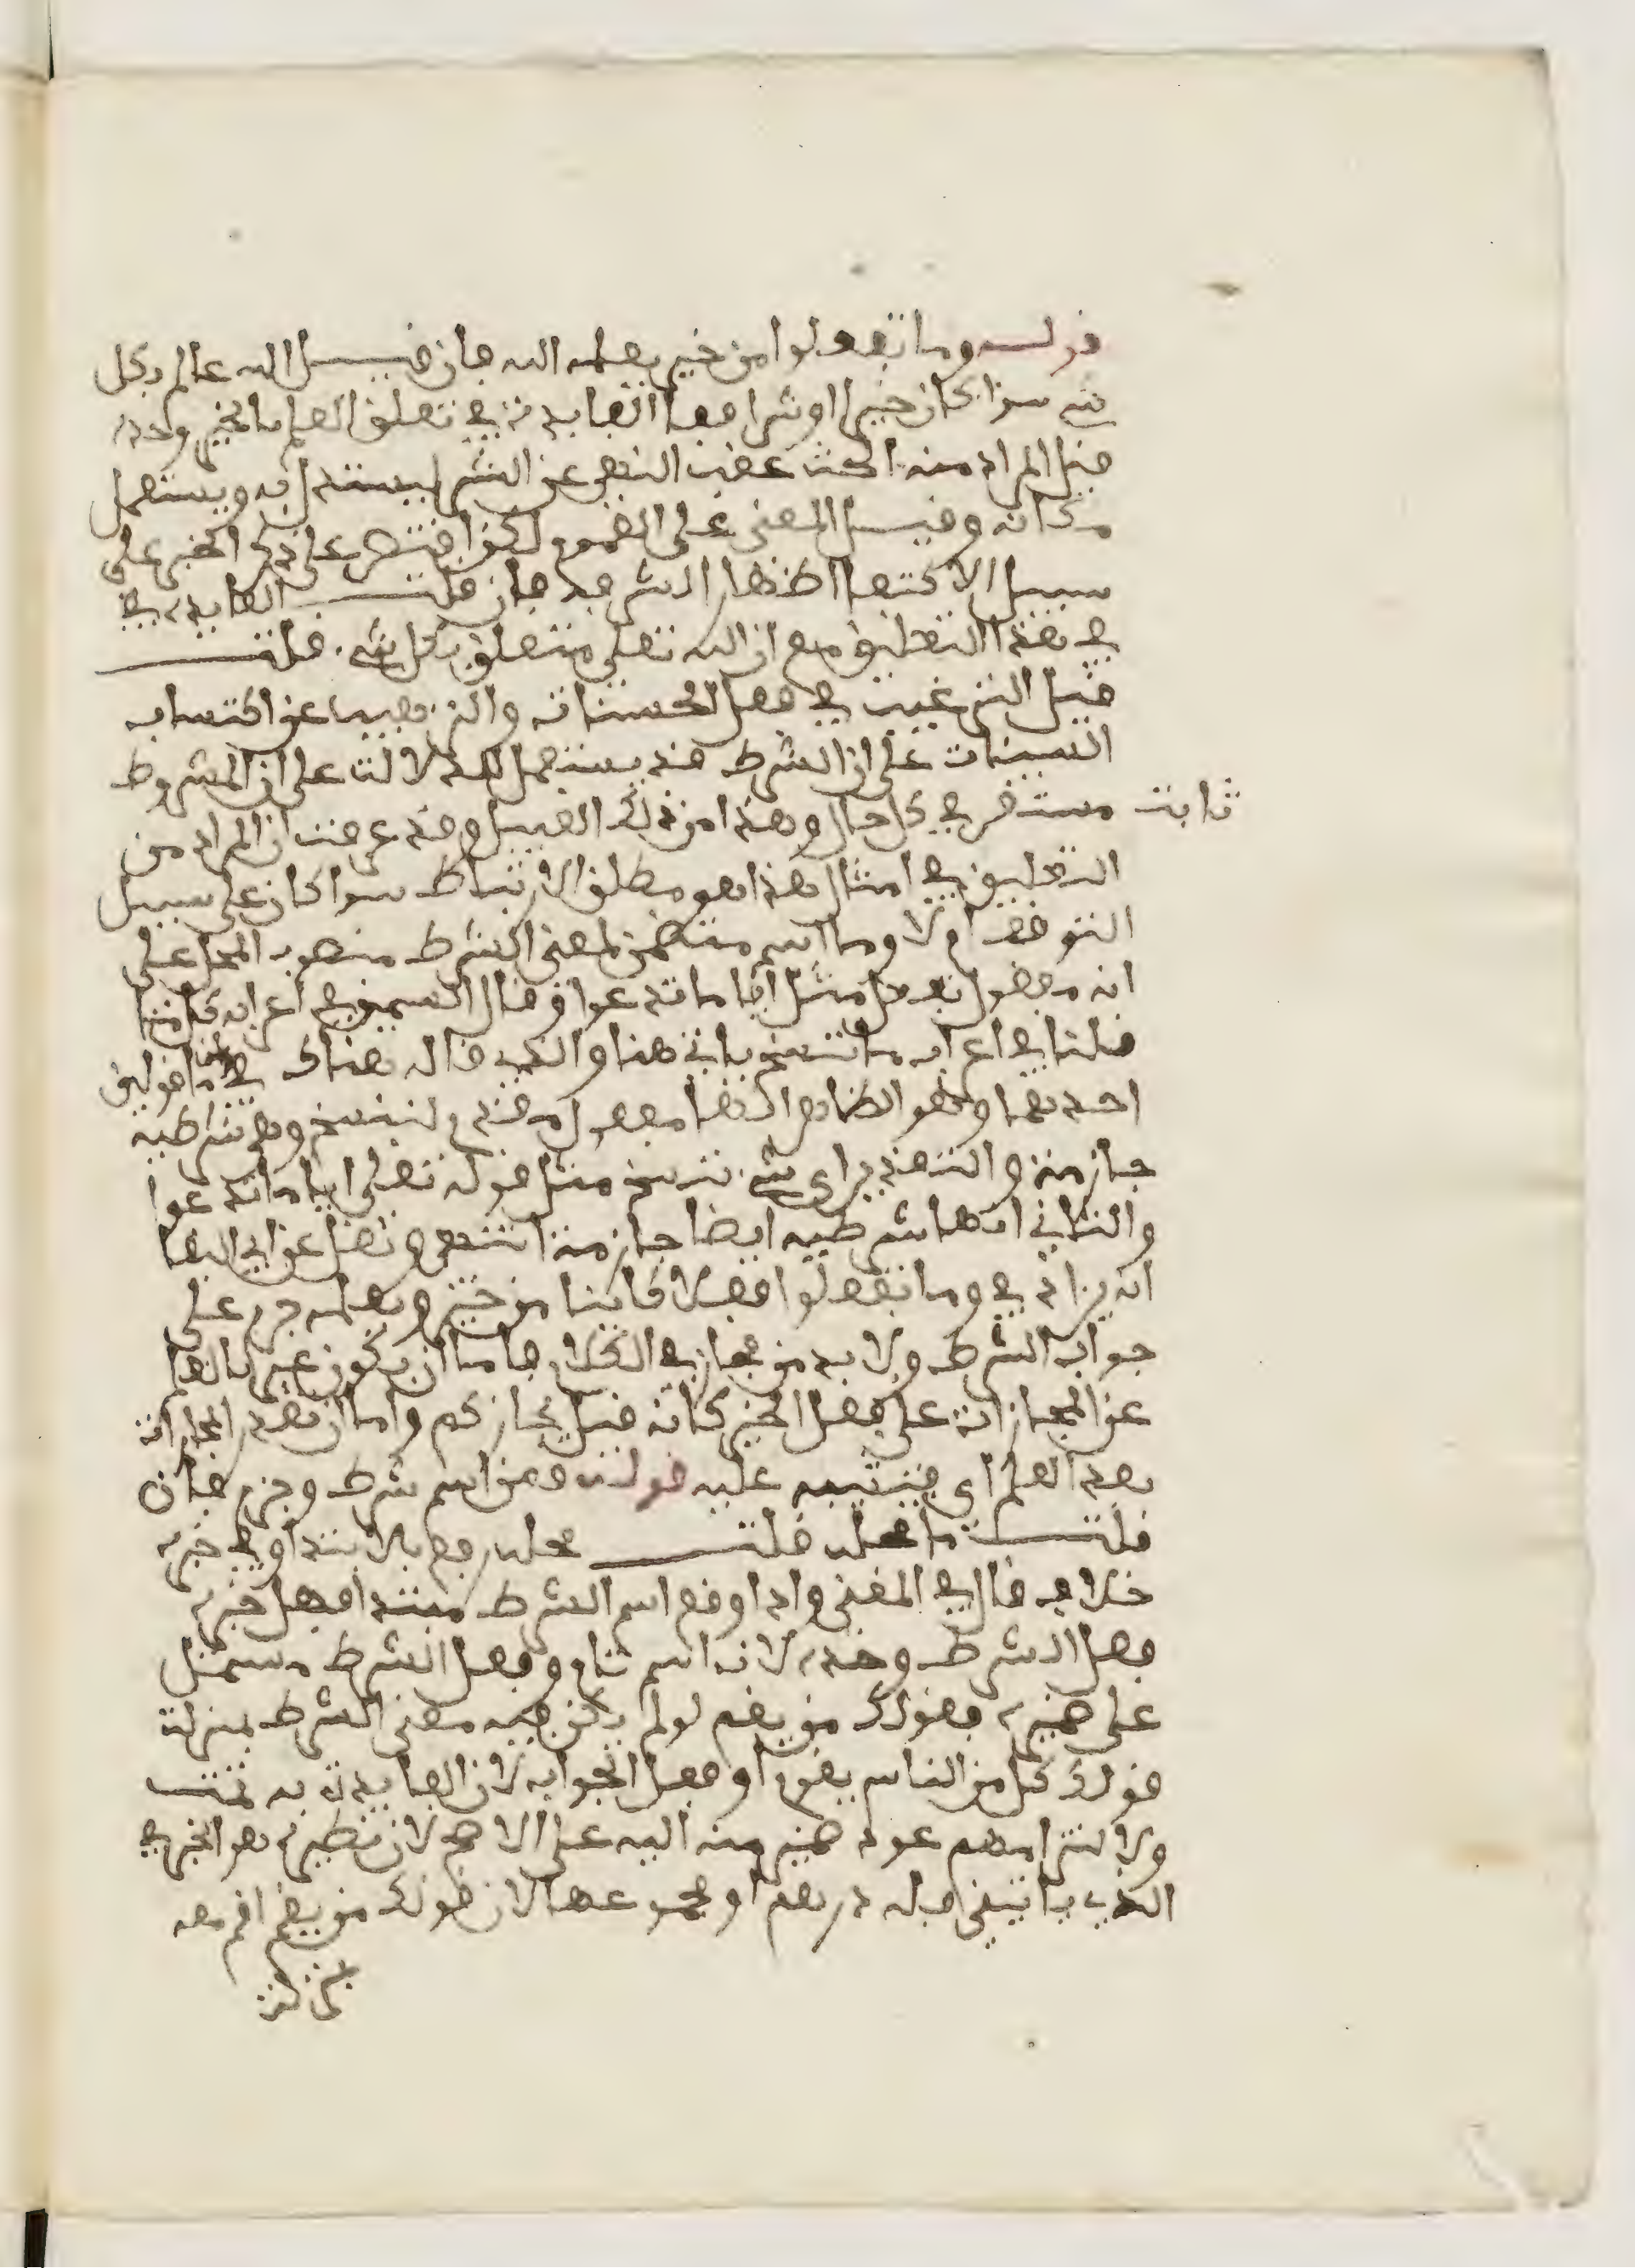 قولـــه وما تفعلوا من خير يعلمه الله فان قيـــل الله عالم بكل
شيء سوا كان خيرا او شرا فما الفايدة في تعلق العلم بالخير وحده
قيل المراد منه الحث عقب النهي عن الشر ليستدل به ويستعمل
مكانه وقيـــل المعنى على العموم لكن اقتصر على ذكر الخير على
سبيل الاكتفا اظهارا لشرفه فان قلتـــ الفايدة في
في هذا التعليق مع ان الله تعلى متعلق بكل شيء. قلتـــ
قيل الترغيب في فعل الحسنات والترهيب عن اكتساب
السيئات على ان الشرط قد يستعمل للدلالة على ان المشروط
ثابت مستقر في كل حال وهذا من ذلك القبيل وقد عرفت ان المراد من
التعليق في امثال هذا هو مطلق الارتباط سوا كان على سبيل
التوقف ام لا وما اسم متضمن لمعنى الشرط منصوب المحل على
انه مفعول تفعل مثل أيا ما تدعوا وقال السمين في اعرابه كل ما
قلنا في اعراب ما ننسخ ياتي هنا والذي قاله هناك في ما قولين
احدهما وهو الظاهر انها مفعول مقدم لننسخ وهي شرطية
جازمة والتقدير اي شيء ننسخ مثل قوله تعلى ايا ما تدعوا
والثاني انها شرطية ايضا جازمة انتهى ونقل عن ابي البقا
انه يراد في وما تفعلوا فعلا كاينا من خير ويعلمه جزم على
جواب الشرط ولا بد من مجاز في الكلام فاما ان يكون عبر بالعلم
عن المجازاة على فعل الخير كانه قيل يجازكم واما ان تقدر المجازاة
بعد العلم اي فيثيبه عليه قولـه ومن اسم شرط وجزم فان
قلتـــ ما محله قلتـــ محله رفع بالابتدا وفي خبره
خلاف قال في المغني واذا وقع اسم الشرط مبتدا فهل خبره
فعل الشرط وحده لانه اسم تام وفعل الشرط مشتمل
على ضميره فقولك من يقم لو لم يكن فيه معنى الشرط بمنزلة
قولك كل من الناس يقوم او فعل الجواب لان الفايدة به تمت
ولالتزامهم عود ضمير منه اليه على الاصح لان نظيره هو الخبر في
الذي ياتيني فله درهم او مجموعهما لان قولك من يقم اقم معه